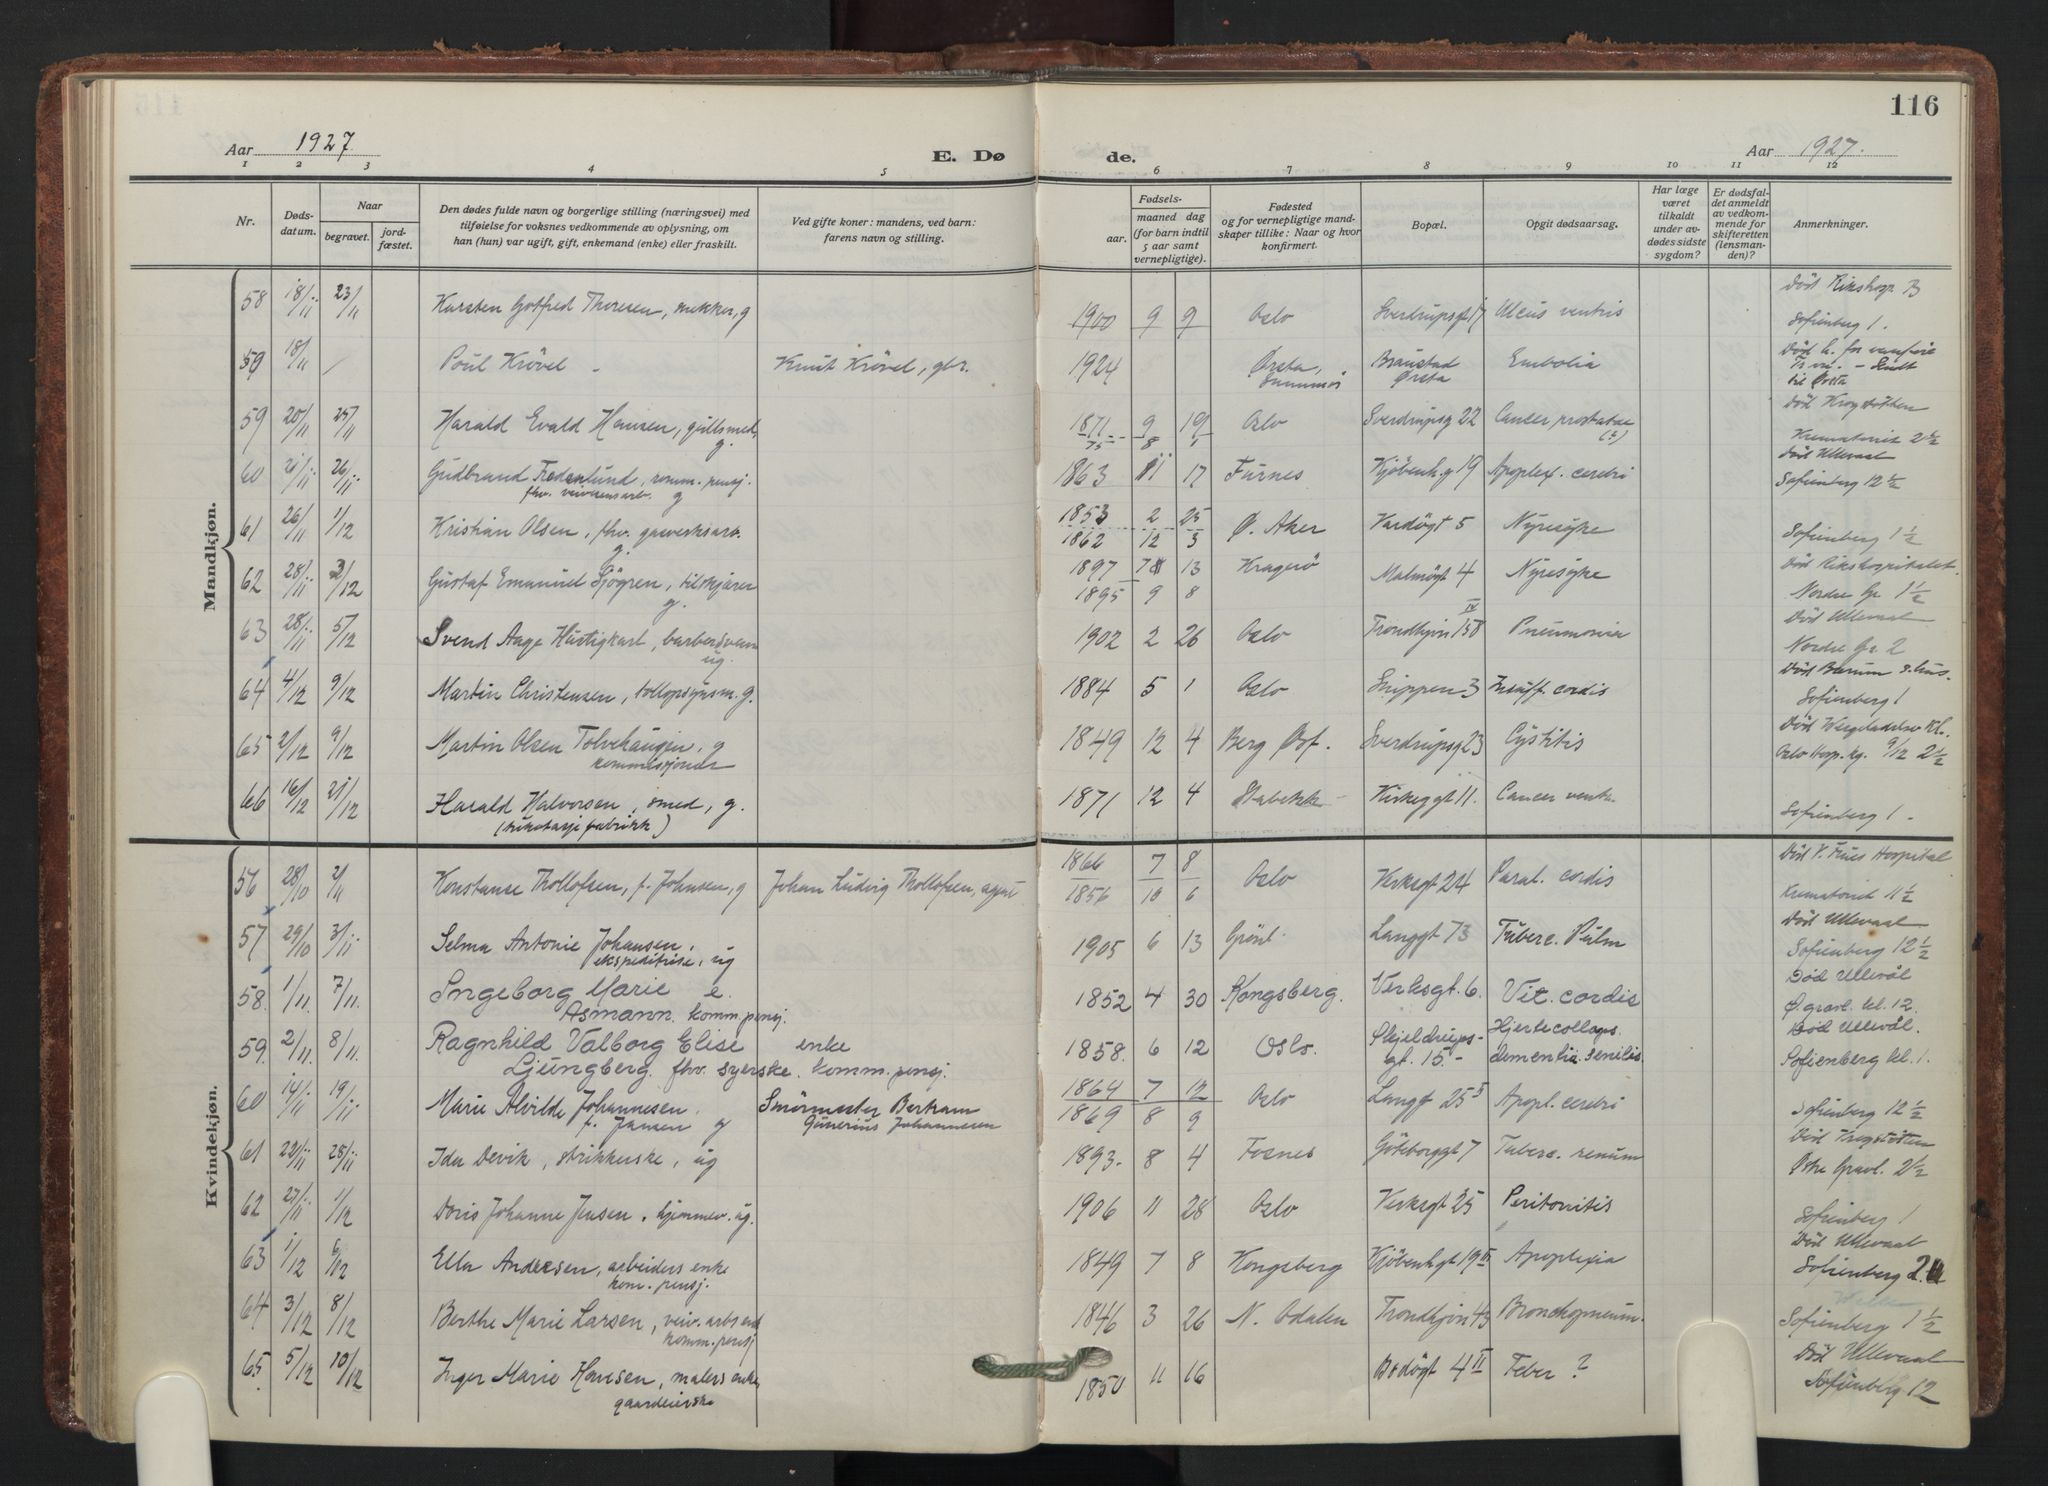 116
Aar 1927.
E. Døde.
Aar 1927.
1 2 3 4 5 6 7 8 9 10 11 12
Nr.
Døds-datum.
Naar
begravet. jord-fæstet.
Den dødes fulde navn og borgerlige stilling (næringsvei) med
tilføielse for voksnes vedkommende av oplysning, om
han (hun) var ugift, gift, enkemand (enke) eller fraskilt.
Ved gifte koner: mandens, ved barn:
farens navn og stilling.
Fødsels-
aar. maaned dag
(for barn indtil
5 aar samt
vernepligtige).
Fødested
og for vernepligtige mand-
skaper tillike: Naar og hvor
konfirmert.
Bopæl.
Opgit dødsaarsag.
Har læge
været
tilkaldt
under av-
dødes sidste
sygdom?
Er dødsfal-
det anmeldt
av vedkom-
mende for
skifteretten
(lensman-
den)?
Anmerkninger.
Mandkjøn.
58 18/11 23/11 Karsten Gotfred Thoresen, g 1900 9 9 Oslo Sverdrupsgt 17 Ulcus ventris Død Rikshosp. B
Sofienberg 1.
59 18/11 / Poul Krövel Knut Krövel, gbr. 1924 Ørsta, Sunnmör Ørsta Embolia Død
til Ørsta
59 20/11 25/11 Harald Evald Hansen, gullsmed, g. 1871 9 19 Oslo Sverdrupsg 22 Cancer prostatae Død Krogstötten
75 8 Krematoriet 2 1/2
60 21/11 26/11 Gudbrand komm. pensj. 1863 11 17 Furnes Kjöbenh.g 19 Apoplex. cerebri Død Ullevaal
fhv. g Sofienberg 12 1/2
61 26/11 1/12 Kristian Olsen, fhv. gasverksarb. g. 1853 2 25 Ø. Aker Vardögt 5 Nyresyke
1862 12 3 Sofienberg 1 1/2
62 28/11 3/12 Gustaf Emanuel Sjögren, tilskjærer g. 1897 13 Kragerö Malmögt 4 Nyresyke Död Rikshospitalet.
1895 9 8 Nordre Gr. 1 1/2
63 28/11 5/12 Svend Aage Hurtigkarl, barbersvenn ug. 1902 2 26 Oslo Trondhjsv 158 IV Pneumonia Död Ullevaal
Nordre Gr. 2
64 4/12 9/12 Martin Christensen, tollopsynsm. g. 1884 5 1 Oslo Snippen 3 Insuff. cordis Död Bærum s.hus.
Sofienberg 1
65 2/12 9/12 Martin Olsen Tolvehaugen, g 1849 12 4 Berg Øsf. Sverdrupsg 23 Cystitis
kommisjonær Oslo Hosp. kg. 9/12 2 1/2
66 16/12 21/12 Harald Halvorsen, smed, g. 1871 12 4 Stabekk Kirkeggt 11. Cancer ventr.
(trikotasjefabrikk) Sofienberg 1.
Kvindekjøn.
56 28/10 2/11 Konstanse Thollofsen, f. Johnsen, g Johan Ludvig Thollofsen, agent 1866 7 8 Oslo Verksgt 24 Paral. cordis Död V. Frues Hospital
1856 10 6 Krematoriet 11 1/2
57 29/10 3/11 Selma Antonie Johansen, 1905 6 13 Grönl. Langgt 73 Tuberc. Pulm Död Ullevaal
ekspeditrise, ug Sofienberg 12 1/2
58. 1/11. 7/11. Ingeborg Marie e. 1852 4 30 Kongsberg. Verksgt. 6. Vit. cordis Död Ullevål
Asmann. komm. pensj. Ø. gravl. kl. 12.
59. 2/11. 8/11. Ragnhild Valborg Elise enke 1858. 6 12 Oslo. Skjeldrups-gt. 15.- Hjertecollaps. dementia senilis Död Ullevål.
Ljungberg. fhv. syerske. komm. pensj. Sofienberg kl. 1.
60 14/11 19/11 Marie Alvilde Johannesen Smörmester Bertram 1864 7 12 Oslo Langgt 25 Apopl. cerebri
f. Jansen g Gunerius Johannesen 1869 8 9 Sofienberg 12 1/2
61 22/11 28/11 Ida Devik, strikkerske, ug 1893. 8 4 Fosnes Göteborggt 7 Tuberc. renum Död Krogstötten
Östre Gravl. 2 1/2
62 27/11 1/12 Doris Johanne Jensen, hjemmev. ug. 1906 11 28 Oslo Verksgt 25 Peritonitis
Sofienberg 1
63 1/12 6/12 Ella Andersen, arbeiders enke 1849 7 8 Kongsberg Kjöbenhgt 19 II Apoplexia Död Ullevaal
kom. pensj. Sofienberg 2.
64 3/12 8/12 Berthe Marie Larsen, veiv. arbs enke 1846 3 26 N. Odalen Trondhjsv 43 Bronchopneum.
komm. pensj Sofienberg 1 1/2
65 5/12 10/12 Inger Marie Hansen, malers enke 1850 11 16 Bodögt 4 II Feber ? Död Ullevaal
gaardeierske Sofienberg 12